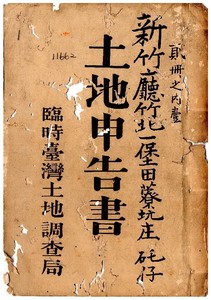 貳冊之內壹
新竹廳竹北一堡田藔坑庄 矺仔
土地申告書
臨時臺灣土地調查局
11662